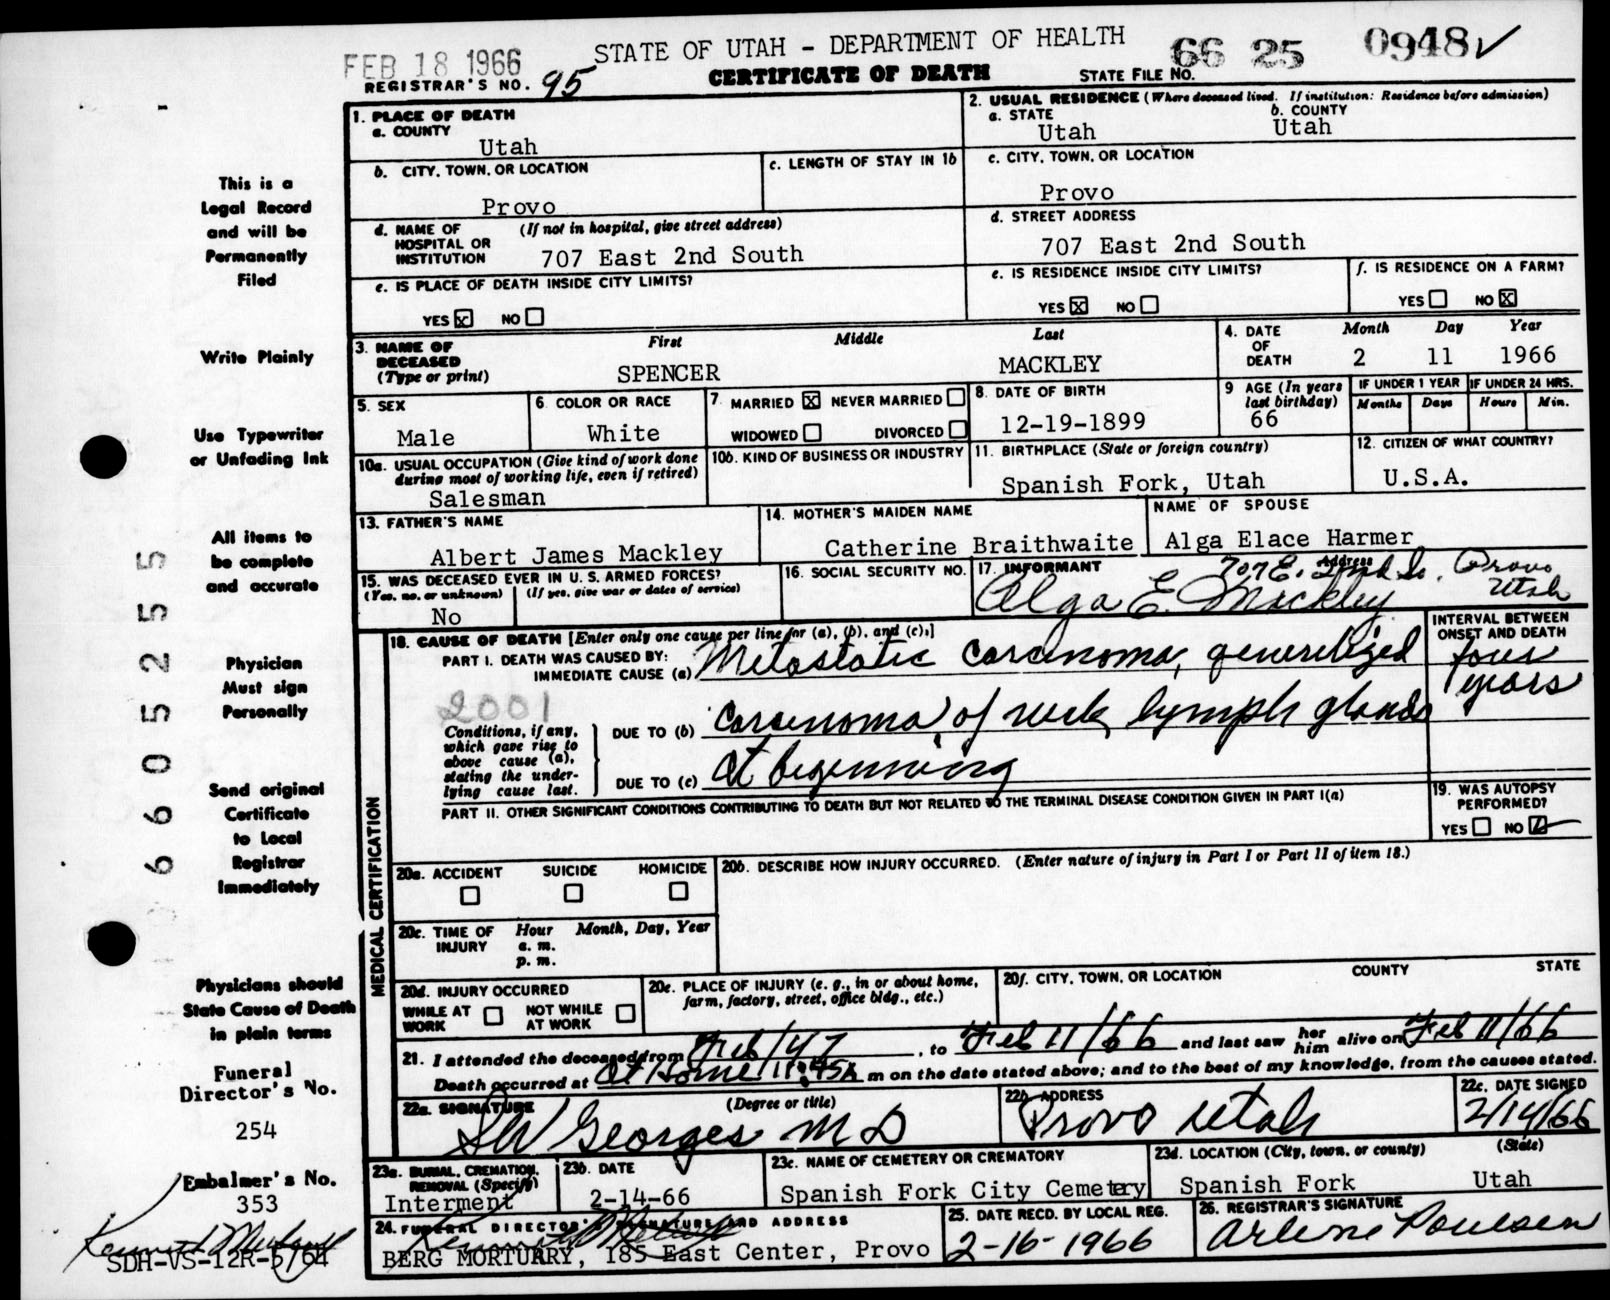 FEB 18 1966
STATE OF UTAH - DEPARTMENT OF HEALTH
66 25 0948 ✓
REGISTRAR'S NO. 95
CERTIFICATE OF DEATH
STATE FILE NO.
1. PLACE OF DEATH
a. COUNTY
Utah
2. USUAL RESIDENCE (Where deceased lived. If institution: Residence before admission)
a. STATE
Utah
b. COUNTY
Utah
b. CITY, TOWN, OR LOCATION
Provo
c. LENGTH OF STAY IN 1b
c. CITY, TOWN, OR LOCATION
Provo
d. NAME OF HOSPITAL OR INSTITUTION
(If not in hospital, give street address)
707 East 2nd South
d. STREET ADDRESS
707 East 2nd South
e. IS PLACE OF DEATH INSIDE CITY LIMITS?
YES X NO
e. IS RESIDENCE INSIDE CITY LIMITS?
YES X NO
f. IS RESIDENCE ON A FARM?
YES NO X
3. NAME OF DECEASED
(Type or print)
First Middle Last
SPENCER MACKLEY
4. DATE OF DEATH
Month Day Year
2 11 1966
5. SEX
Male
6. COLOR OR RACE
White
7. MARRIED X NEVER MARRIED
WIDOWED DIVORCED
8. DATE OF BIRTH
12-19-1899
9 AGE (In years last birthday)
66
IF UNDER 1 YEAR
Months Days
IF UNDER 24 HRS.
Hours Min.
10a. USUAL OCCUPATION (Give kind of work done during most of working life, even if retired)
Salesman
10b. KIND OF BUSINESS OR INDUSTRY
11. BIRTHPLACE (State or foreign country)
Spanish Fork, Utah
12. CITIZEN OF WHAT COUNTRY?
U.S.A.
13. FATHER'S NAME
Albert James Mackley
14. MOTHER'S MAIDEN NAME
Catherine Braithwaite
NAME OF SPOUSE
Alga Elace Harmer
15. WAS DECEASED EVER IN U. S. ARMED FORCES?
(Yes, no, or unknown) (If yes, give war or dates of service)
No
16. SOCIAL SECURITY NO.
17. INFORMANT Address
Alga E. Mackley
707 E. 2nd So. Provo Utah
18. CAUSE OF DEATH [Enter only one cause per line for (a), (b), and (c).]
PART I. DEATH WAS CAUSED BY:
IMMEDIATE CAUSE (a) Metastatic carcinoma, generalized
2001
Conditions, if any, which gave rise to above cause (a), stating the underlying cause last.
DUE TO (b) Carcinoma, of neck lymph glands
DUE TO (c) at beginning
INTERVAL BETWEEN ONSET AND DEATH
four years
PART II. OTHER SIGNIFICANT CONDITIONS CONTRIBUTING TO DEATH BUT NOT RELATED TO THE TERMINAL DISEASE CONDITION GIVEN IN PART I(a)
19. WAS AUTOPSY PERFORMED?
YES NO
MEDICAL CERTIFICATION
20a. ACCIDENT SUICIDE HOMICIDE
20b. DESCRIBE HOW INJURY OCCURRED. (Enter nature of injury in Part I or Part II of item 18.)
20c. TIME OF INJURY
Hour Month, Day, Year
a. m.
p. m.
20d. INJURY OCCURRED
WHILE AT WORK NOT WHILE AT WORK
20e. PLACE OF INJURY (e. g., in or about home, farm, factory, street, office bldg., etc.)
20f. CITY, TOWN, OR LOCATION COUNTY STATE
21. I attended the deceased from Feb/47, to Feb 11/66 and last saw her him alive on Feb 11/66
Death occurred at At Home 11:45A m on the date stated above; and to the best of my knowledge, from the causes stated.
22a. SIGNATURE (Degree or title)
SW Georges M D
22b. ADDRESS
Provo Utah
22c. DATE SIGNED
2/14/66
23a. BURIAL, CREMATION, REMOVAL (Specify)
Interment
23b. DATE
2-14-66
23c. NAME OF CEMETERY OR CREMATORY
Spanish Fork City Cemetery
23d. LOCATION (City, town, or county) (State)
Spanish Fork Utah
24. FUNERAL DIRECTOR'S SIGNATURE AND ADDRESS
BERG MORTUARY, 185 East Center, Provo
25. DATE RECD. BY LOCAL REG.
2-16-1966
26. REGISTRAR'S SIGNATURE
Arlene Poulsen
This is a
Legal Record
and will be
Permanently
Filed
Write Plainly
Use Typewriter
or Unfading Ink
All items to
be complete
and accurate
Physician
Must sign
Personally
Send original
Certificate
to Local
Registrar
Immediately
Physicians should
State Cause of Death
in plain terms
Funeral
Director's No.
254
Embalmer's No.
353
SDH-VS-12R-5/64
66052555